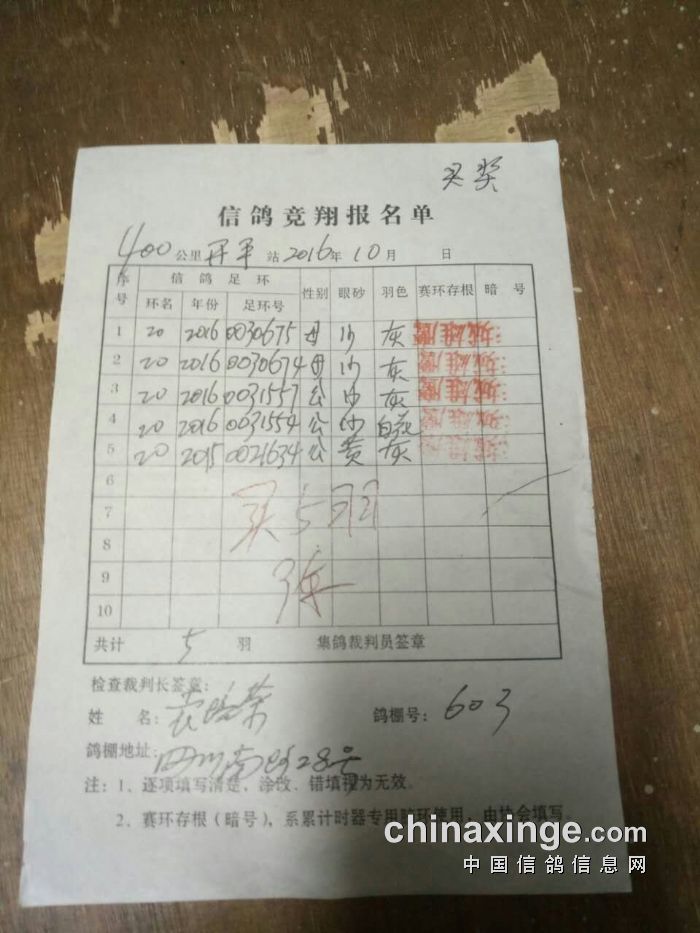 买奖
信鸽竞翔报名单
400公里开平站2016年10月 日
序号 信鸽足环 性别 眼砂 羽色 赛环存根 暗号
环名 年份 足环号
1 20 2016 0030675 母 沙 灰
2 20 2016 0030674 母 沙 灰
3 20 2016 0031557 公 沙 灰
4 20 2016 0031554 公 沙 白花
5 20 2015 0021634 公 黄 灰
6
7 买5羽
8
9 张
10
共计 5 羽 集鸽裁判员签章
检查裁判长签章:
姓 名: 荣 鸽棚号: 603
鸽棚地址: 28号
注:1、逐项填写清楚,涂改、错填视为无效。
2、赛环存根(暗号),系累计时器专用胶环使用,由协会填写。
chinaxinge.com
中国信鸽信息网